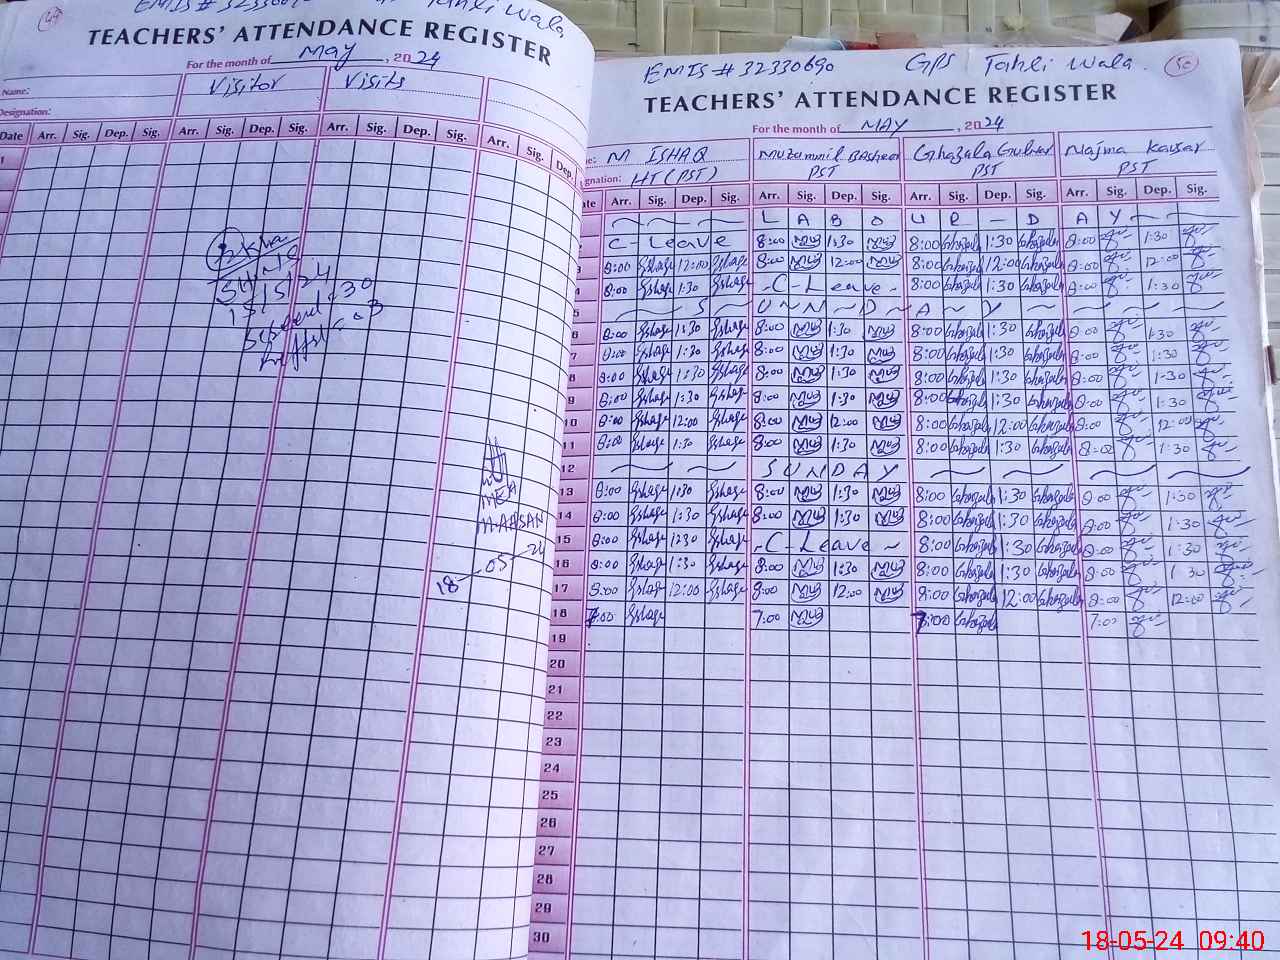 49
EMIS # 32330690 Tahli Wala
TEACHERS' ATTENDANCE REGISTER
For the month of May, 2024
Name: Visitor Visits
Designation:
Date Arr. Sig. Dep. Sig. Arr. Sig. Dep. Sig. Arr. Sig. Dep. Sig. Arr. Sig. Dep.
1
MEA
M. AHSAN
18-05-24
50
EMIS # 32330690 GPS Tahli Wala.
TEACHERS' ATTENDANCE REGISTER
For the month of MAY, 2024
M ISHAQ Muzammil Basheer Ghazala Gulnar Najma Kausar
HT (PST) PST PST PST
Arr. Sig. Dep. Sig. Arr. Sig. Dep. Sig. Arr. Sig. Dep. Sig. Arr. Sig. Dep. Sig.
L A B O U R - D A Y
C - Leave 8:00 1:30 8:00 Ghazala 1:30 Ghazala 8:00 1:30
3 8:00 Ishaq 12:00 Ishaq 8:00 12:00 8:00 Ghazala 12:00 Ghazala 8:00 12:00
4 8:00 Ishaq 1:30 Ishaq -C-Leave- 8:00 Ghazala 1:30 Ghazala 8:00 1:30
5 S U N D A Y
6 8:00 Ishaq 1:30 Ishaq 8:00 1:30 8:00 Ghazala 1:30 Ghazala 8:00 1:30
7 8:00 Ishaq 1:30 Ishaq 8:00 1:30 8:00 Ghazala 1:30 Ghazala 8:00 1:30
8 8:00 Ishaq 1:30 Ishaq 8:00 1:30 8:00 Ghazala 1:30 Ghazala 8:00 1:30
9 8:00 Ishaq 1:30 Ishaq 8:00 1:30 8:00 Ghazala 1:30 Ghazala 8:00 1:30
10 8:00 Ishaq 12:00 Ishaq 8:00 12:00 8:00 Ghazala 12:00 Ghazala 8:00 12:00
11 8:00 Ishaq 1:30 Ishaq 8:00 1:30 8:00 Ghazala 1:30 Ghazala 8:00 1:30
12 S U N D A Y
13 8:00 Ishaq 1:30 Ishaq 8:00 1:30 8:00 Ghazala 1:30 Ghazala 8:00 1:30
14 8:00 Ishaq 1:30 Ishaq 8:00 1:30 8:00 Ghazala 1:30 Ghazala 8:00 1:30
15 8:00 Ishaq 1230 Ishaq -C-Leave- 8:00 Ghazala 1:30 Ghazala 8:00 1:30
16 8:00 Ishaq 1:30 Ishaq 8:00 1:30 8:00 Ghazala 1:30 Ghazala 8:00 1 30
17 8:00 Ishaq 12:00 Ishaq 8:00 12:00 8:00 Ghazala 12:00 Ghazala 8:00 12:00
18 7:00 Ishaq 7:00 7:00 Ghazala 7:00
19
20
21
22
23
24
25
26
27
28
29
30
18-05-24 09:40